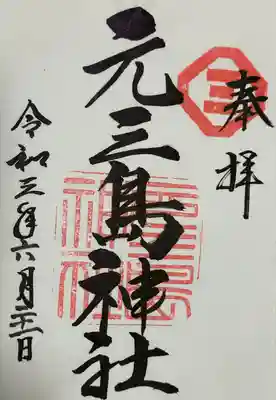 奉拝
元三島神社
令和三年六月二十一日